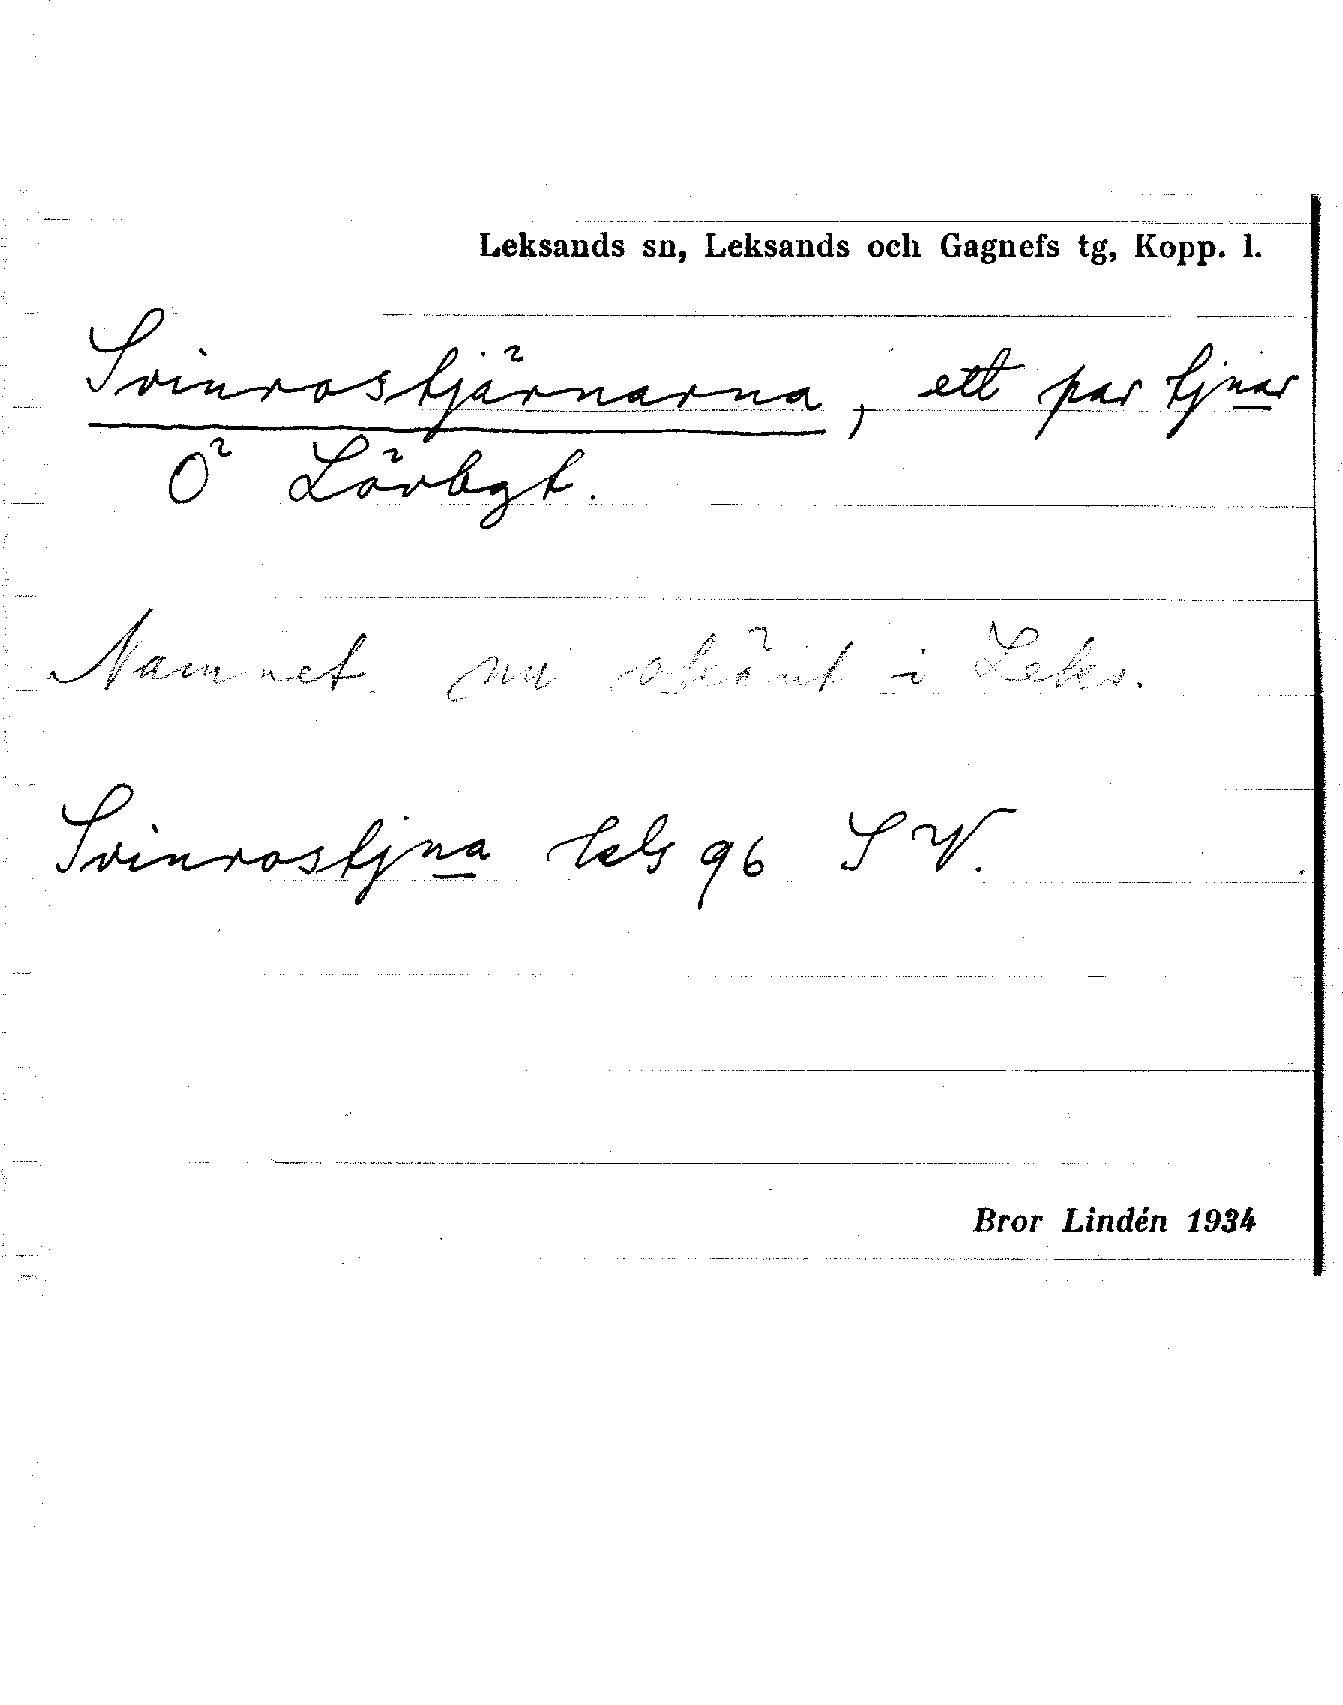 Leksands sn, Leksands och Gagnefs tg, Kopp. l.
Svinrostjärnarna, ett par tjnar
Ö Lövbgt.
Namnet nu okänt i Leks.
Svinrostjna kbl 96 SV.
Bror Lindén 1934